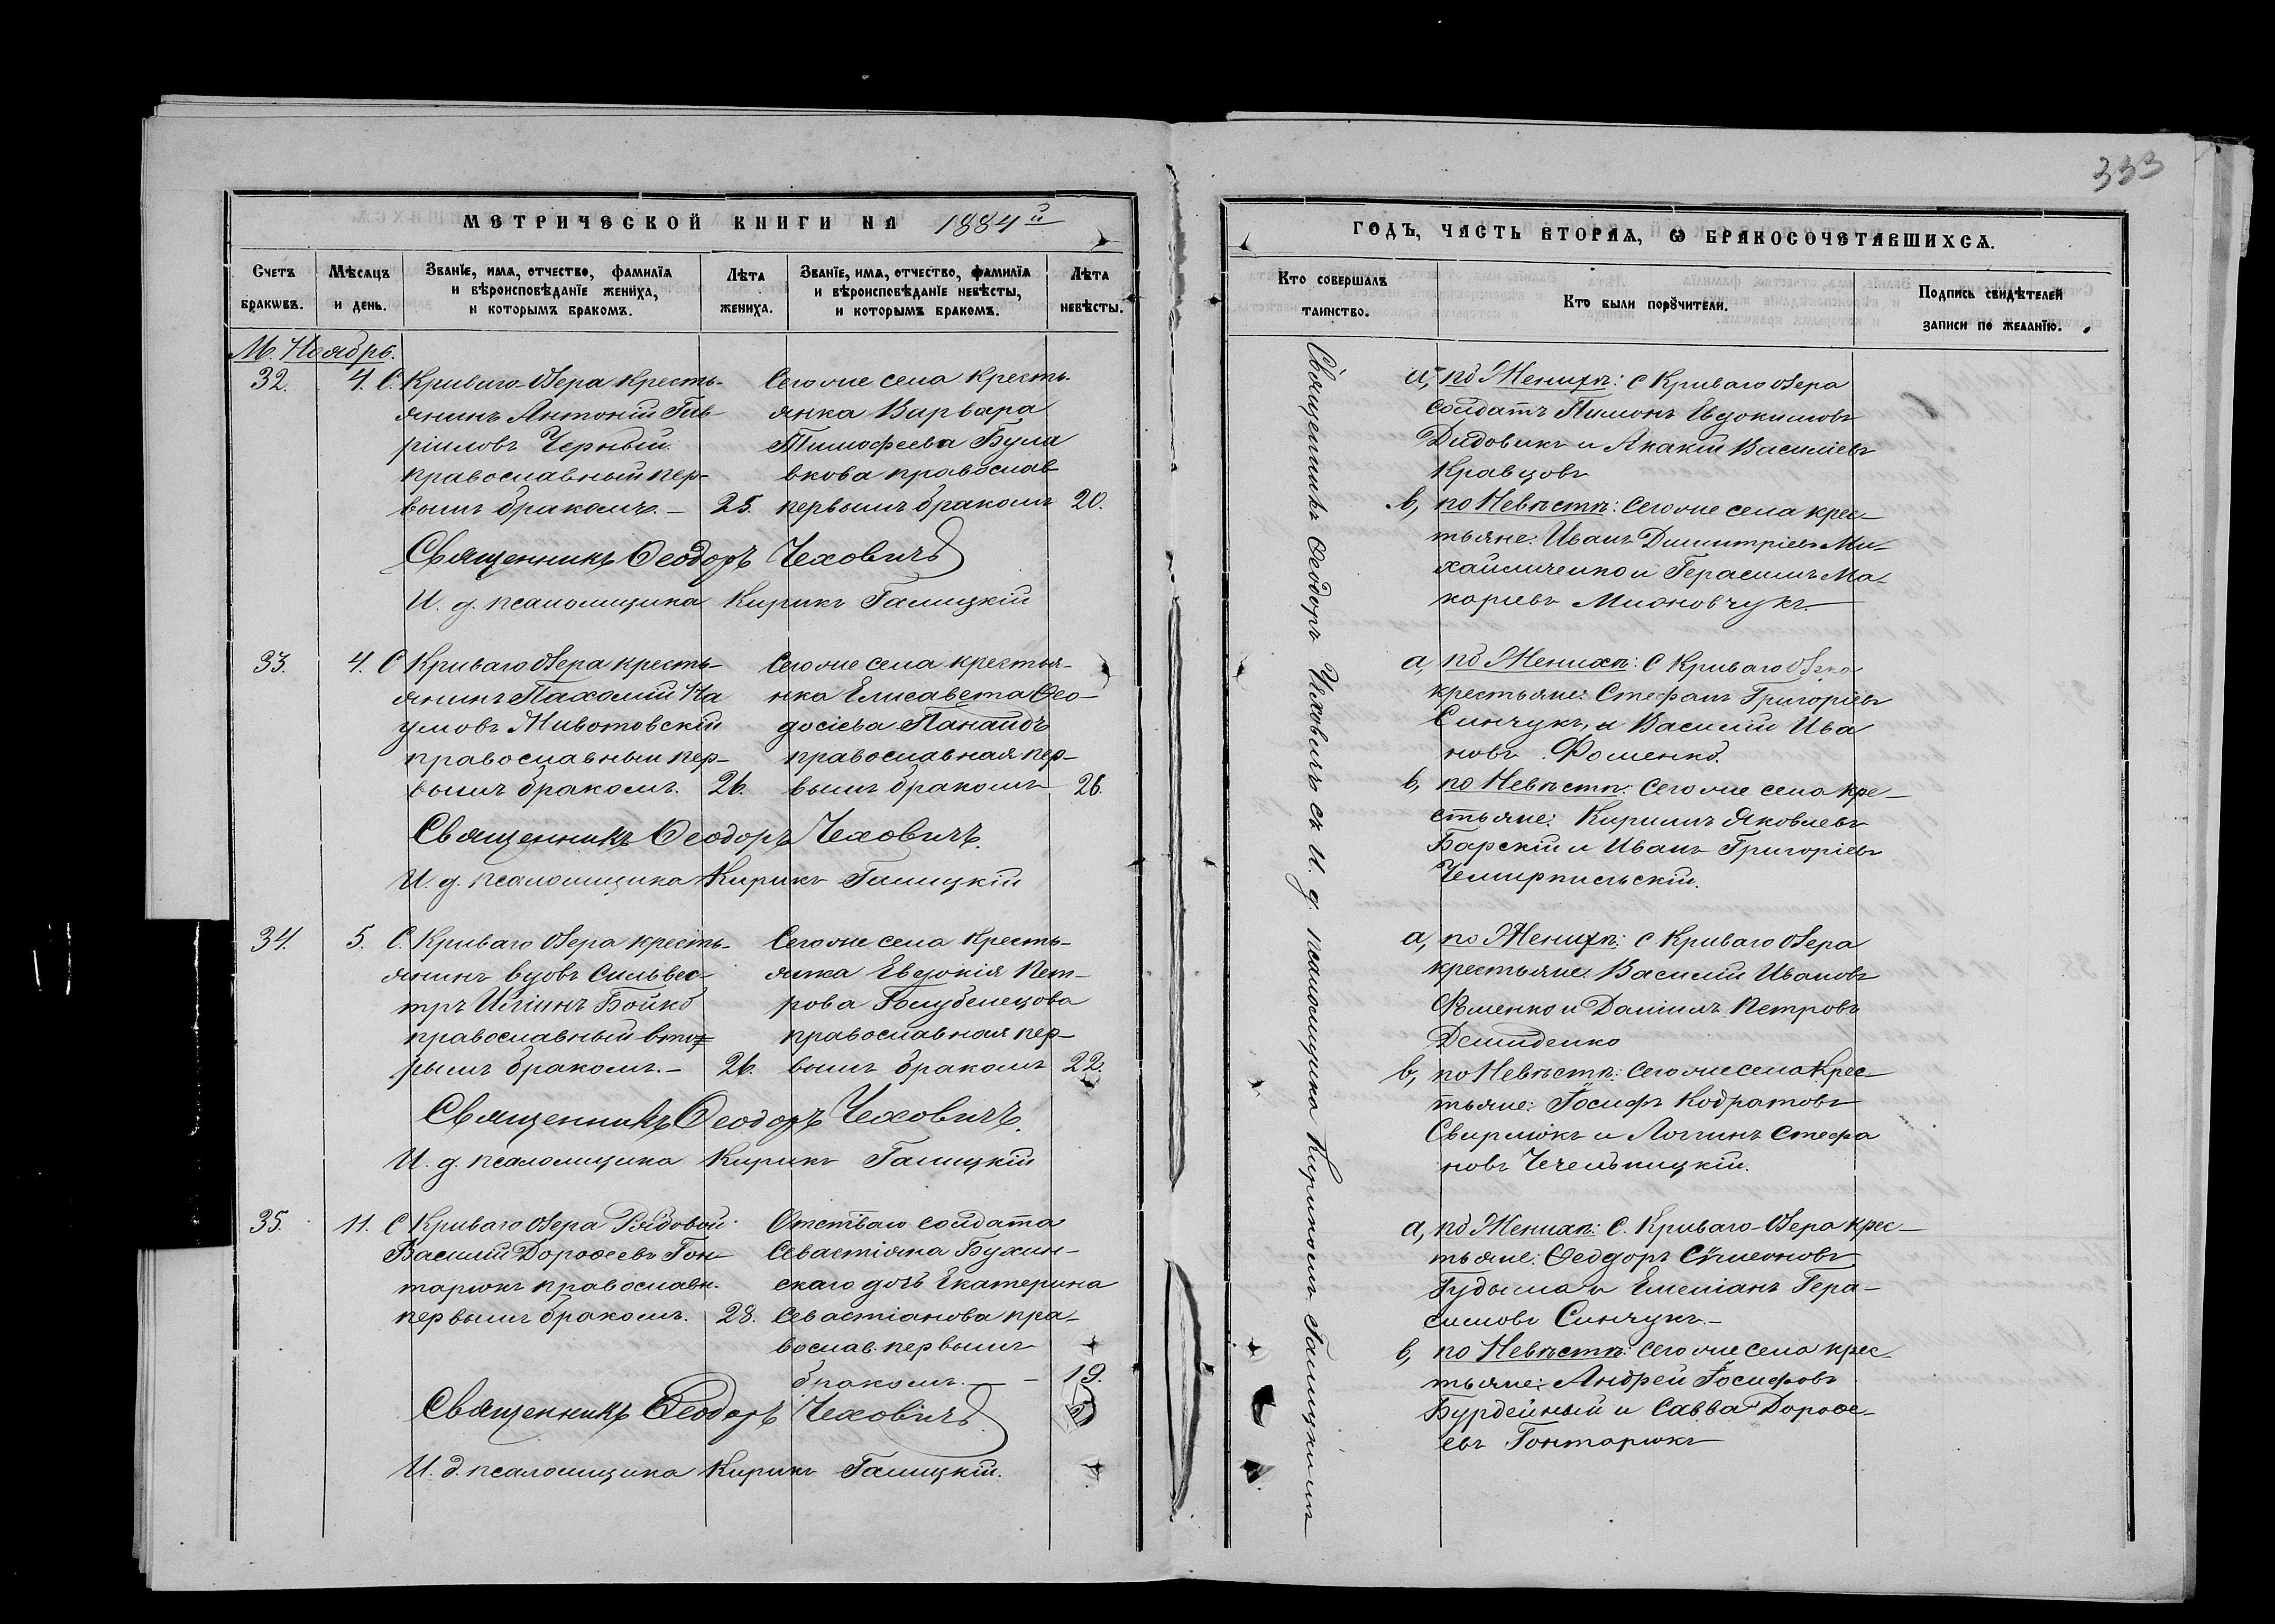 333
МЕТРИЧЕСКОЙ КНИГИ НА 1884й
Счетъ браковъ.
Мѣсяцъ и день.
Званіе, имя, отчество, фамилія и вѣроисповѣданіе жениха, и которымъ бракомъ.
Лѣта жениха.
Званіе, имя, отчество, фамилія и вѣроисповѣданіе невѣсты, и которымъ бракомъ.
Лѣта невѣсты.
М. Ноябрь.
32.
4.
С. Криваго-Озера кресть-
янинъ Антоній Гав-
ріиловъ Черный
православный пер-
вымъ бракомъ. —
25.
Сего же села кресть-
янка Варвара
Тимофеева Була
вкова православ
первымъ бракомъ
20.
Священникъ Ѳеодоръ Чеховичъ
И. д. псаломщика Кирикъ Галицкій
33.
4.
С Криваго Озера кресть-
янинъ Пахомій На
умовъ Животовскій
православный пер-
вымъ бракомъ.
26.
Сего же села крестья-
нка Елисавета Ѳео-
досіева Панаидъ
православная пер-
вымъ бракомъ
26.
Священникъ Ѳеодоръ Чеховичъ.
И. д. псаломщика Кирикъ Галицкій
34.
5.
С. Криваго Озера кресть-
янинъ вдовъ Сильвес-
тръ Иліинъ Бойко
православный втор
рымъ бракомъ. —
26.
Сего же села кресть-
янка Евдокія Пет-
рова Голубенцова
православная пер-
вымъ бракомъ
22.
Священникъ Ѳеодоръ Чеховичъ.
И. д. псаломщика Кирикъ Галицкій
35.
11.
С Криваго Озера Рядовой
Василій Дороѳеевъ Гон-
тарюкъ православн.
первымъ бракомъ.
28.
Отставнаго солдата
Севастіяна Бужин-
скаго дочь Екатерина
Севастіанова пра-
вослав. первымъ
бракомъ. — —
19.
Священникъ Ѳеодоръ Чеховичъ
И. д. псаломщика Кирикъ Галицкій.
ГОДЪ, ЧАСТЬ ВТОРАЯ, Ѡ БРАКОСОЧЕТАВШИХСЯ.
Кто совершалъ таинство.
Кто были поручители.
Подпись свидѣтелей записи по желанію.
Священникъ Ѳеодоръ Чеховичъ съ И. д. псаломщика Кирикомъ Галицкимъ
а, по Женихѣ: С Криваго Озера
солдатъ Пимонъ Евдокимовъ
Дидовикъ и Акакій Василіевъ
Кравцовъ
в, по Невѣстѣ: Сего же села крес-
тьяне: Иванъ Димитріевъ Ми-
хайличенко и Герасимъ Ма-
каріевъ Мионовчукъ. —
а, по Женихѣ: С Криваго Озера
крестьяне: Стефанъ Григоріевъ
Синчукъ, и Василій Ива
новъ Фоменко.
в, по Невѣстѣ: Сего же села кре-
стьяне: Кирилъ Яковлевъ
Барскій и Иванъ Григоріевъ
Чемирписьскій.
а, по Женихѣ: С Криваго Озера
крестьяне: Василій Ивановъ
Фоменко и Даніилъ Петровъ
Демиденко
в, по Невѣстѣ: Сего же села Крес-
тьяне: Іосифъ Кодратовъ
Свирлюкъ и Логгинъ Стефа
новъ Чечельницкій.
а, по Женихѣ: С. Криваго-Озера крес-
тьяне: Ѳеодоръ Сѵмеоновъ
Гудыма и Емеліанъ Гера-
симовъ Синчукъ. —
в, по Невѣстѣ: Сего же села крес-
тьяне: Андрей Іосифовъ
Бурдейный и Савва Дороѳе-
евъ Гонтарюкъ